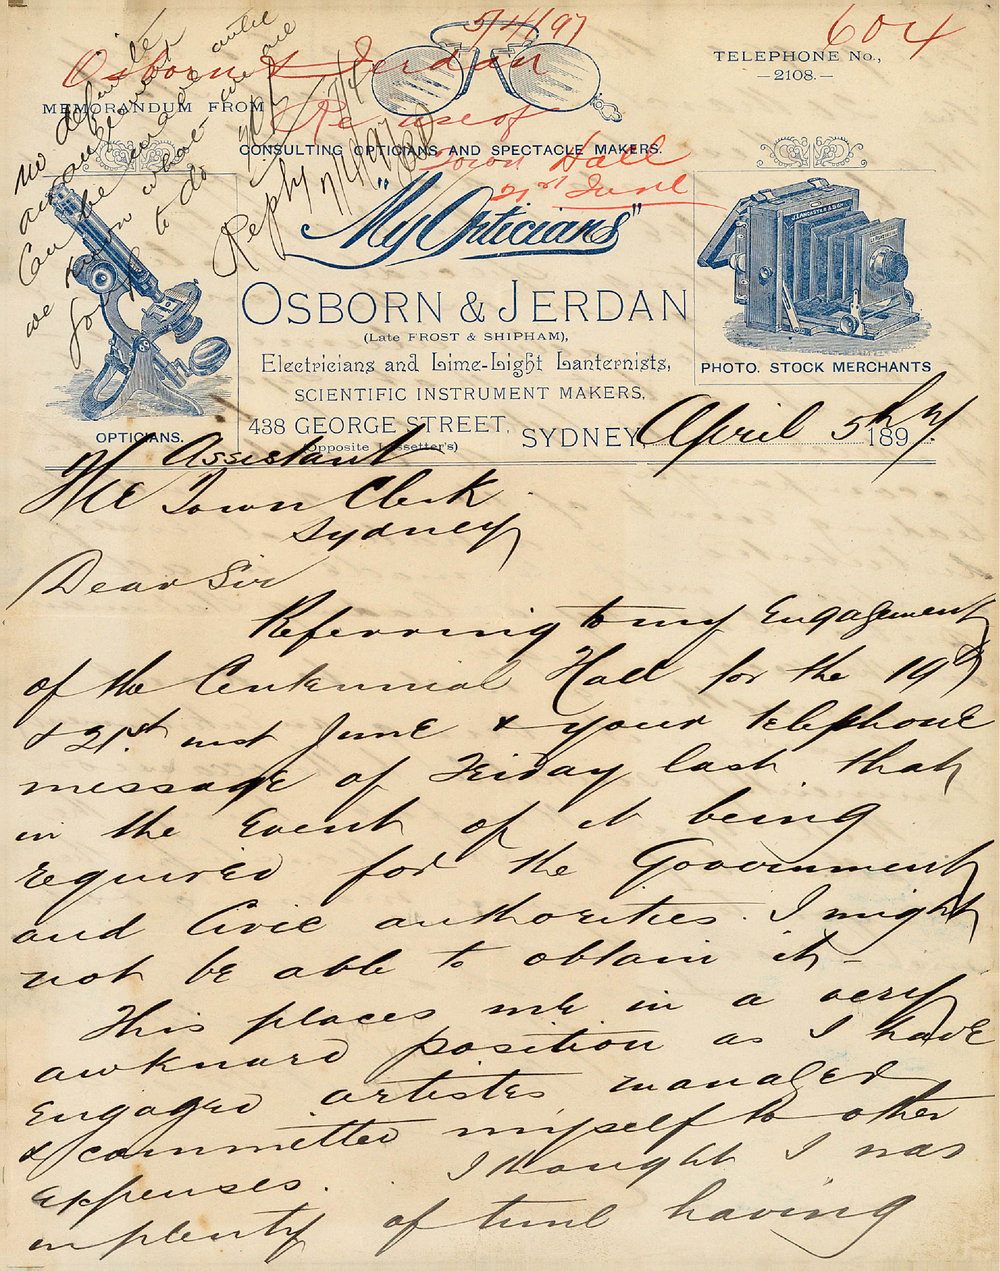 5/4/97
604
Osborn & Jerdan
Re use of
Town Hall
21st June
no definite
arrangement
can be made until
we know what we are
going to do
Reply 7/4/97
TELEPHONE No.,
—2108.—
MEMORANDUM FROM
CONSULTING OPTICIANS AND SPECTACLE MAKERS.
"My Opticians"
OSBORN & JERDAN
(Late FROST & SHIPHAM),
Electricians and Lime-Light Lanternists,
SCIENTIFIC INSTRUMENT MAKERS,
438 GEORGE STREET,
(Opposite Lassetter's)
SYDNEY, April 5th 1897
OPTICIANS.
J. LANCASTER & SON
PHOTO. STOCK MERCHANTS
Assistant
The Town Clerk
Sydney
Dear Sir
Referring to my Engagement
of the Centennial Hall for the 19th
& 21st inst June & your telephone
message of Friday last that
in the Event of it being
required for the Government
and Civic authorities. I might
not be able to obtain it -
This places me in a very
awkward position as I have
Engaged artistes managed
& committed myself to other
Expenses. I thought I was
in plenty of time having